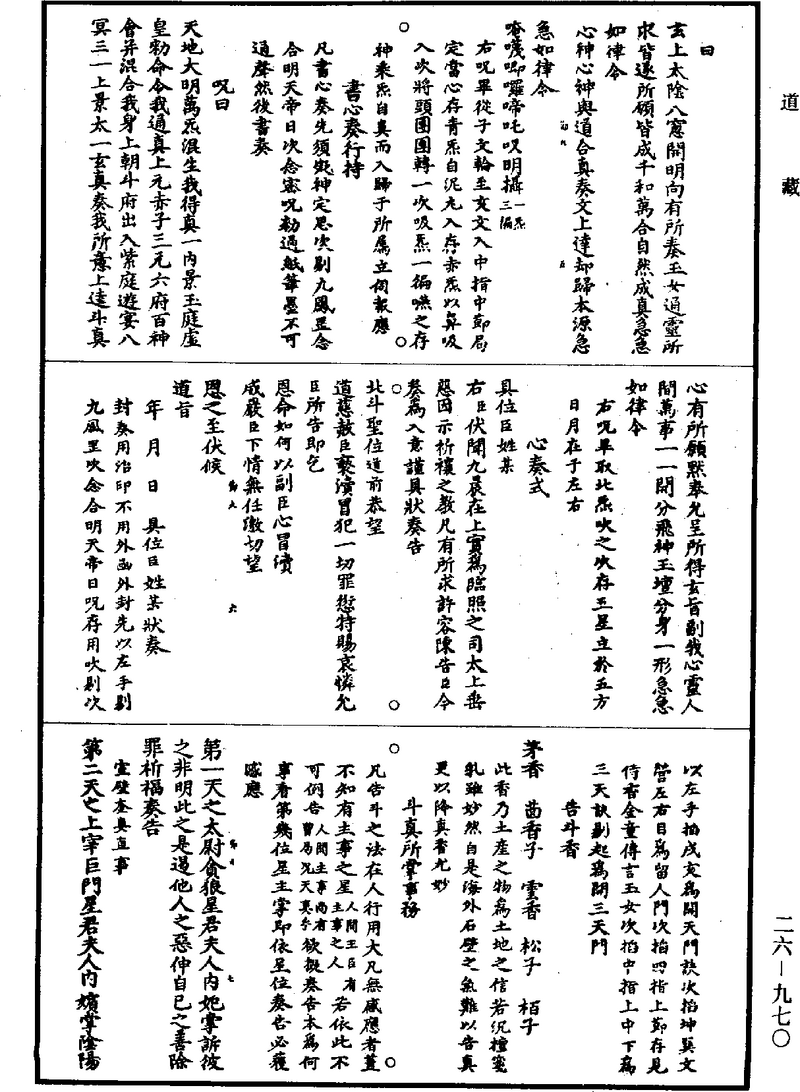 道藏
曰
玄上太陰八窓開明向有所奏玉女通靈所
求皆遂所願皆成千和萬合自然成真急急
如律令
心神心神與道合真奏文上達却歸本源急
急如律令
唵㗶唧囉啼吒㕥明攝一炁三遍
右呪畢從子文輪至亥文入中指中節局
定當心存青炁自泥丸入存赤炁以鼻吸
入次將頭團團轉一次吸炁一徧嚥之存
神乘炁自真而入歸子所屬立伺報應
書心奏行持
凡書心奏先須凝神定思次剔九鳳罡念
合明天帝日次念密呪勑過紙筆墨不可
通聲然後書奏
呪曰
天地大明萬炁混生我得真一內景玉庭虛
皇勑命令我通真上元赤子三元六府百神
會并混合我身上朝斗府出入紫庭遊宴八
冥三一上景太一玄真奏我所意上達斗真
心有所願默奉允呈所得玄旨副我心靈人
間萬事一一開分飛神玉壇分身一形急急
如律令
右呪畢取北炁吹之次存五星立於五方
日月在于左右
心奏式
具位臣姓某
右臣伏聞九晨在上實爲臨照之司太上垂
慈因示祈禳之教凡有所求許容陳告臣今
奏爲入意謹具狀奏告
北斗聖位道前恭望
道慈赦臣褻瀆冒犯一切罪愆特賜哀憐允
臣所告即乞
恩命如何以副臣心冒瀆
威嚴臣下情無任激切望
恩之至伏候
道旨
年月日具位臣姓某狀奏
封奏用治印不用外函外封先以左手剔
九鳳罡次念合明天帝日呪存用吹剔次
以左手掐戌亥爲開天門訣次掐坤巽文
營左右目爲留人門次掐四指上節存見
侍香金童傳言玉女次掐中指上中下爲
三天訣剔起爲開三天門
告斗香
茅香 茴香子 雲香 松子 栢子
此香乃土產之物爲土地之信若沉檀蜜
乳雖妙然自是海外石壁之氣難以告真
更以降真香尤妙
斗真所掌事務
凡告斗之法在人行用大凡無感應者蓋
不知有主事之星人間王臣有主事之人若依此不
可例告人間主事尚有曹局况天真乎欲擬奏告本爲何
事看第幾位星主掌即依星位奏告必獲
感應
第一天之太尉貪狼星君夫人內妃掌訴彼
之非明此之是遏他人之惡伸自己之善除
罪祈福奏告
宣壁奎奥直事
第二天之上宰巨門星君夫人內嬪掌陰陽
二六—九七〇